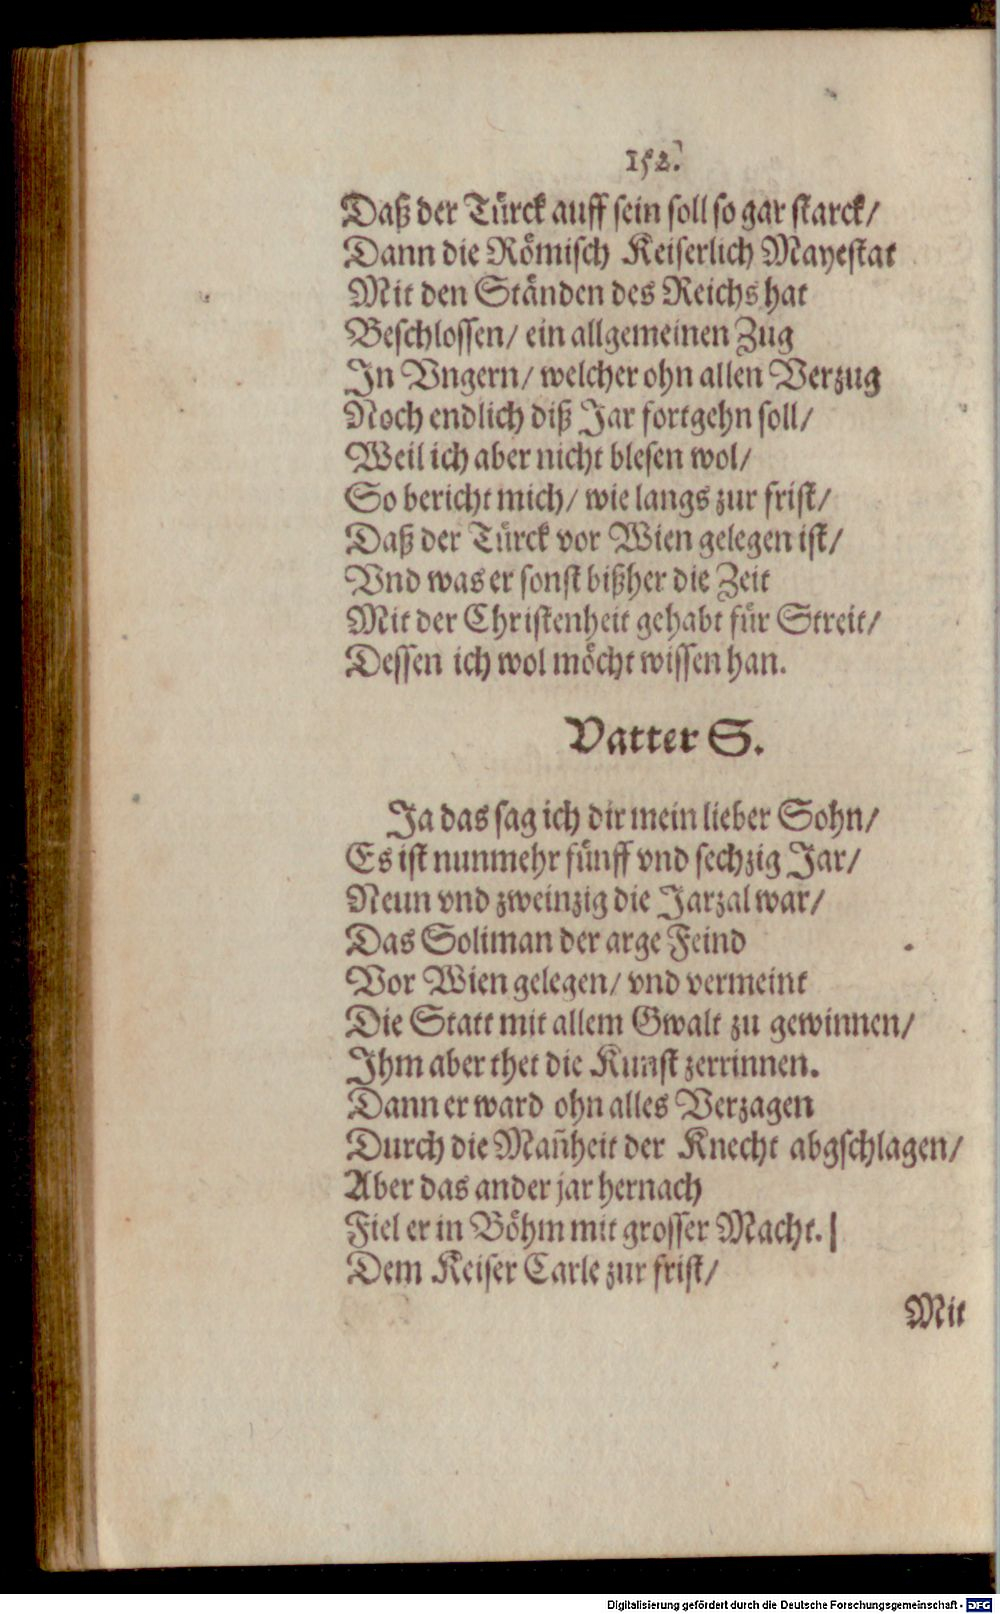 152.
Daß der Türck auff sein soll so gar starck/
Dann die Römisch Keiserlich Mayestat
Mit den Ständen des Reichs hat
Beschlossen/ ein allgemeinen Zug
In Vngern/ welcher ohn allen Verzug
Noch endlich diß Jar fortgehn soll/
Weil ich aber nicht blesen wol/
So bericht mich/ wie langs zur frist/
Daß der Türck vor Wien gelegen ist/
Vnd was er sonst bißher die Zeit
Mit der Christenheit gehabt für Streit/
Dessen ich wol möcht wissen han.
Vatter S.
Ja das sag ich dir mein lieber Sohn/
Es ist nunmehr fünff vnd sechzig Jar/
Neun vnd zweinzig die Jarzal war/
Das Soliman der arge Feind
Vor Wien gelegen/ vnd vermeint
Die Statt mit allem Gwalt zu gewinnen/
Ihm aber thet die Kunst zerrinnen.
Dann er ward ohn alles Verzagen
Durch die Mañheit der Knecht abgschlagen/
Aber das ander jar hernach
Fiel er in Böhm mit grosser Macht.
Dem Keiser Carle zur frist/
Mit
Digitalisierung gefördert durch die Deutsche Forschungsgemeinschaft - DFG